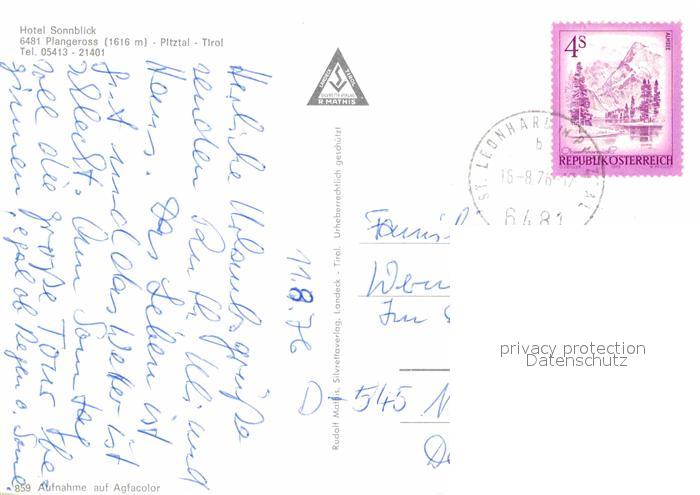 Hotel Sonnblick
6481 Plangeross (1616 m) - Pitztal - Tirol
Tel. 05413 - 21401
Herzliche Urlaubsgrüße
senden Ruth, Uli und
Hans. Das Leben ist
fest und das Wetter ist
schlecht. Am Sonntag
soll die große Tour
egal ob Regen o. Sonne
11.8.76
859 Aufnahme auf Agfacolor
R. MATHIS
Rudolf Mathis, Silvrettaverlag, Landeck - Tirol. Urheberrechtlich geschützt
4S
ALMSEE
REPUBLIK ÖSTERREICH
ST. LEONHARD IM PITZTAL
b
16-8.76-17
6481
Fami
Wer
Im
D-545 N
privacy protection
Datenschutz